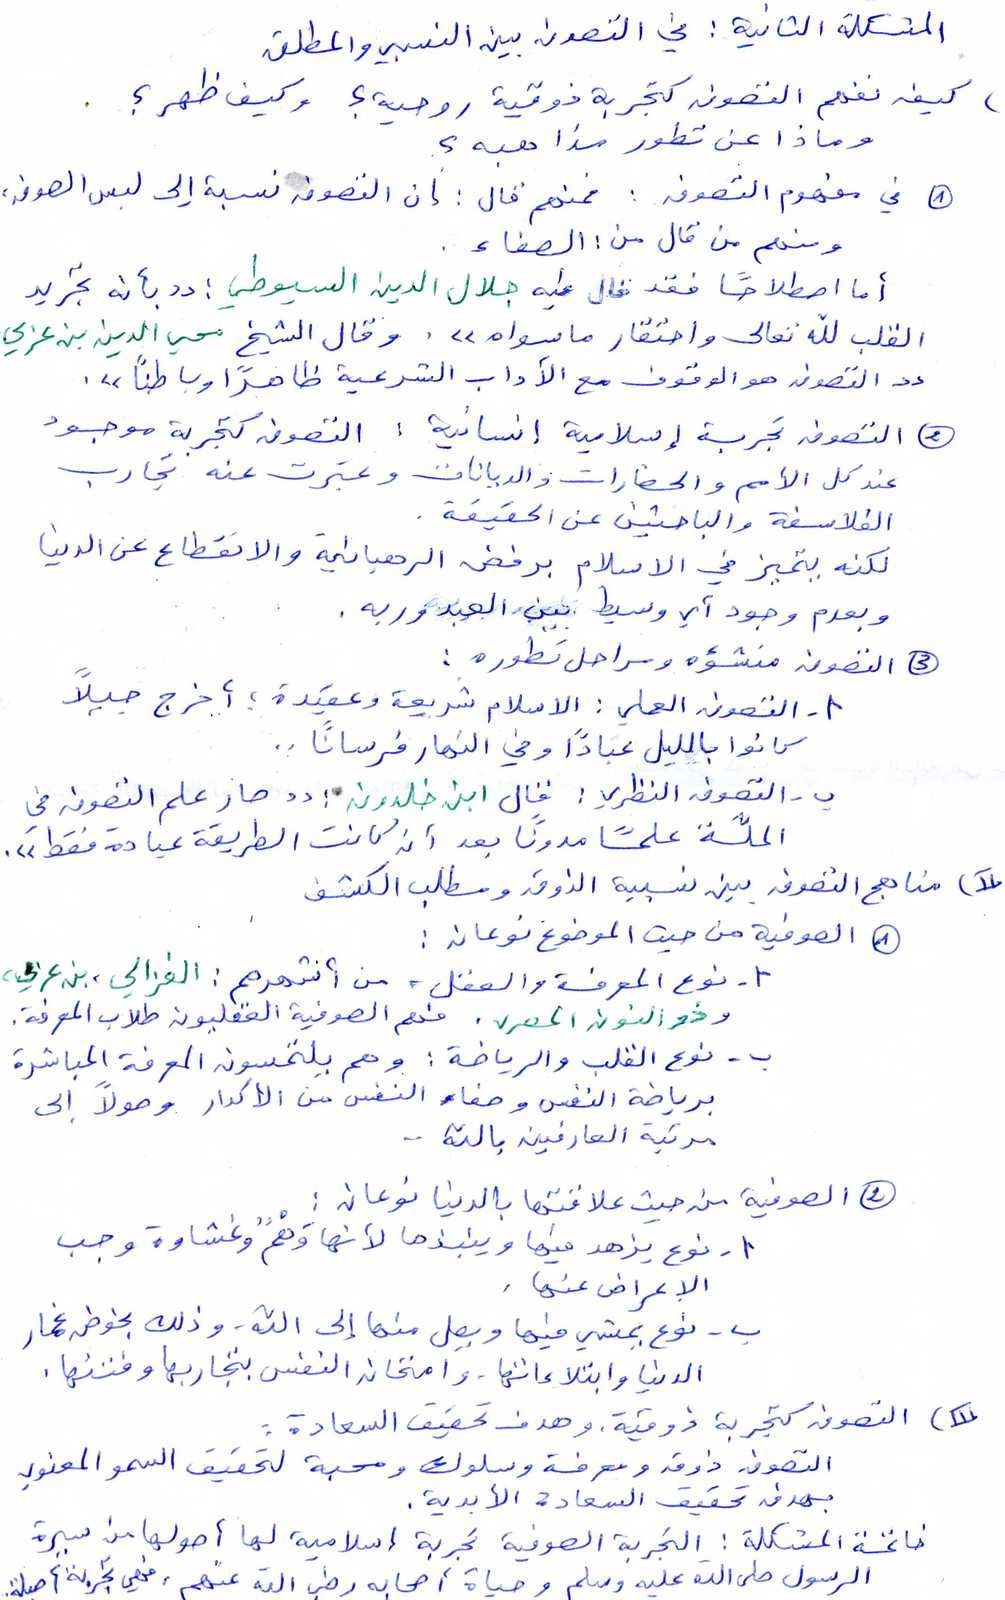 المشكلة الثانية : في التصوف بين النسبي والمطلق
) كيف نفهم التصوف كتجربة ذوقية روحية ؟ وكيف ظهر ؟
وماذا عن تطور مذاهبه ؟
① في مفهوم التصوف : فمنهم قال : إن التصوف نسبة إلى لبس الصوف،
ومنهم من قال من : الصفاء .
أما اصطلاحًا فقد قال عليه جلال الدين السيوطي : «بأنه تجريد
القلب لله تعالى واحتقار ما سواه» . وقال الشيخ محي الدين بن عربي
«التصوف هو الوقوف مع الآداب الشرعية ظاهرًا وباطنًا» .
② التصوف تجربة إسلامية إنسانية : التصوف كتجربة موجود
عند كل الأمم والحضارات والديانات وعبّرت عنه تجارب
الفلاسفة والباحثين عن الحقيقة .
لكنه يتميز في الاسلام برفض الرهبانية والانقطاع عن الدنيا
وبعدم وجود أي وسيط بين العبد وربه .
③ التصوف منشؤه ومراحل تطوره :
أ- التصوف العملي : الاسلام شريعة وعقيدة ، أخرج جيلاً
كانوا بالليل عبادًا وفي النهار فرسانًا ..
ب- التصوف النظري : قال ابن خلدون : «صار علم التصوف في
الملّة علمًا مدونًا بعد أن كانت الطريقة عبادة فقط» .
II) مناهج التصوف بين نسبية الذوق ومطلب الكشف
① الصوفية من حيث الموضوع نوعان :
أ- نوع المعرفة والعقل ، من أشهرهم : الغزالي ، بن عربي ،
وذو النون المصري . فهم الصوفية العقليون طلاب المعرفة .
ب- نوع القلب والرياضة : وهم يلتمسون المعرفة المباشرة
برياضة النفس وصفاء النفس من الأكدار وصولاً إلى
مرتبة العارفين بالله -
② الصوفية من حيث علاقتها بالدنيا نوعان :
أ- نوع يزهد فيها وينبذها لأنها وَهْمٌ وغشاوة وجب
الإعراض عنها .
ب- نوع يمشي فيها ويصل منها إلى الله - وذلك بخوض غمار
الدنيا وابتلاءاتها - وامتحان النفس بتجاربها وفتنها .
III) التصوف كتجربة ذوقية وهدف تحقيق السعادة :
التصوف ذوق ومعرفة وسلوك ومحبة لتحقيق السمو المعنوي
بهدف تحقيق السعادة الأبدية .
خاتمة المشكلة : التجربة الصوفية تجربة إسلامية لها أصولها من سيرة
الرسول صلى الله عليه وسلم وحياة أصحابه رضي الله عنهم ، فهي تجربة أصيلة .